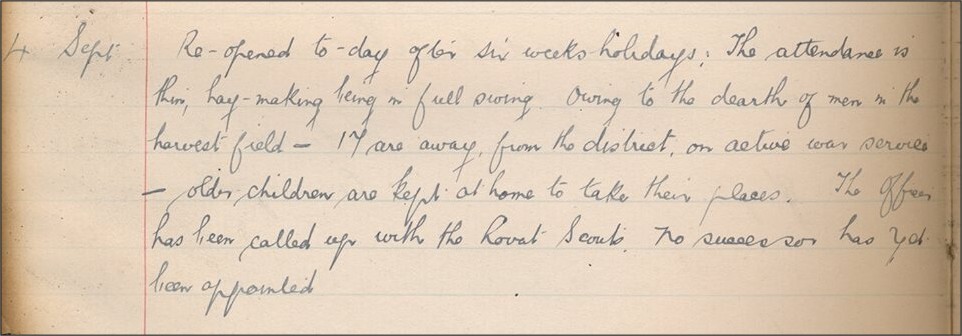 4 Sept Re-opened to-day after six weeks holidays; The attendance is
thin, hay-making being in full swing. Owing to the dearth of men in the
harvest field - 17 are away, from the district, on active war service
- older children are kept at home to take their places. The Officer
has been called up with the Lovat Scouts. No successor has yet
been appointed